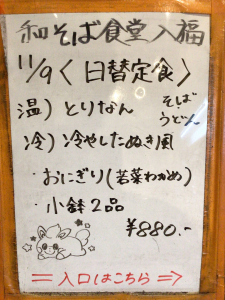 和そば食堂入福
11/9〈日替定食〉
温）とりなん そば
うどん
冷）冷やしたぬき風
・おにぎり（若菜わかめ）
・小鉢2品
¥880.-
＝入口はこちら⇒